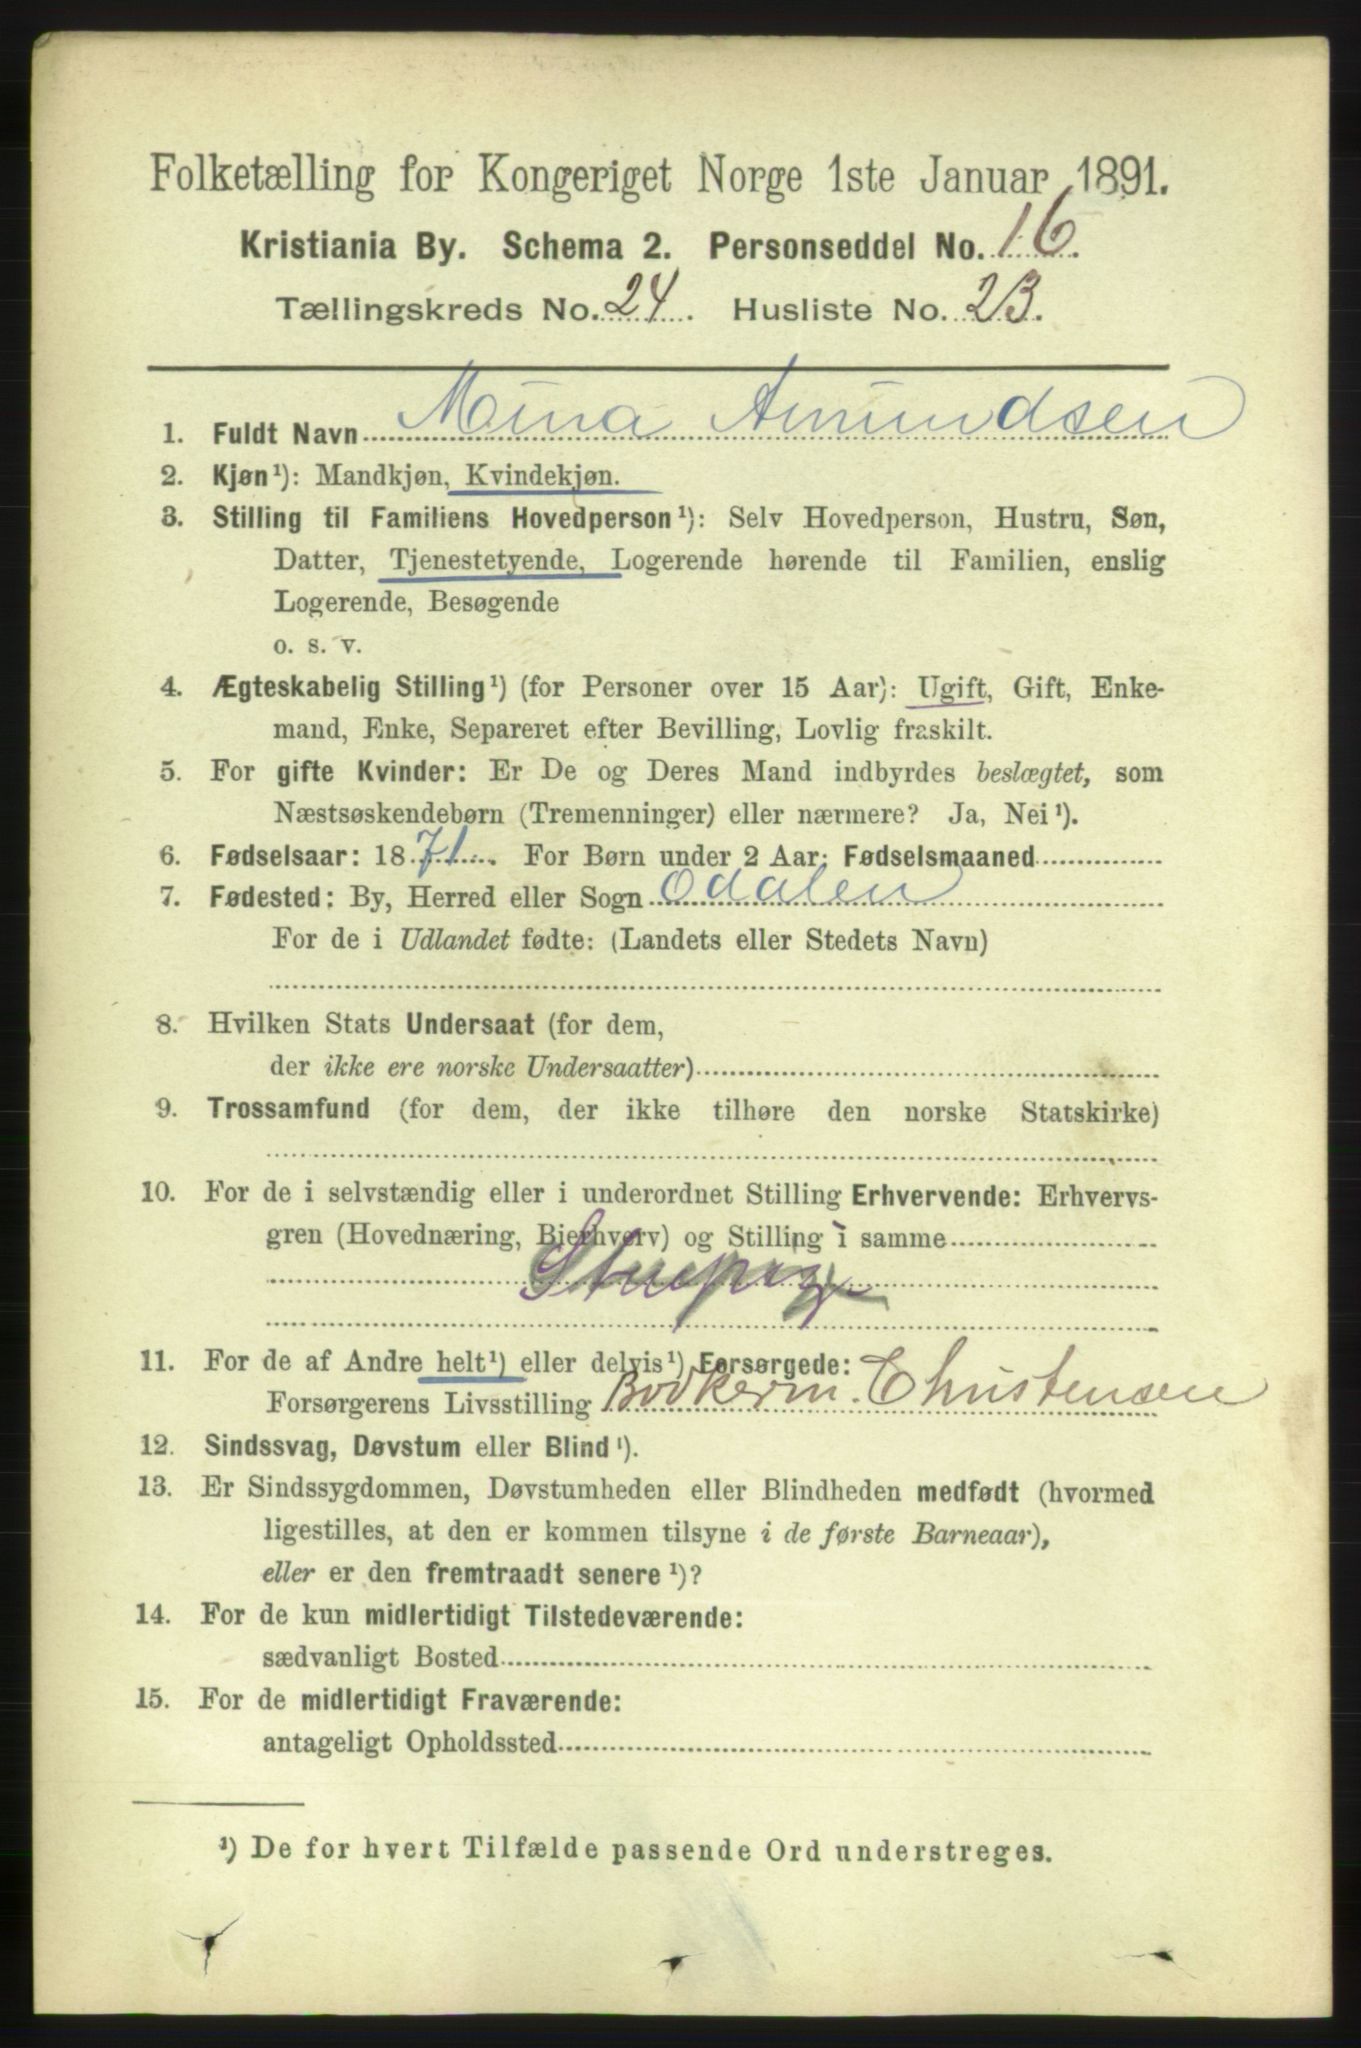 Folketælling for Kongeriget Norge 1ste Januar 1891.
Kristiania By. Schema 2. Personseddel No. 16.
Tællingskreds No. 24. Husliste No. 23.
1. Fuldt Navn Mina Amundsen
2. Kjøn¹): Mandkjøn, Kvindekjøn.
3. Stilling til Familiens Hovedperson¹): Selv Hovedperson, Hustru, Søn,
Datter, Tjenestetyende, Logerende hørende til Familien, enslig
Logerende, Besøgende
o. s. v.
4. Ægteskabelig Stilling¹) (for Personer over 15 Aar): Ugift, Gift, Enke-
mand, Enke, Separeret efter Bevilling, Lovlig fraskilt.
5. For gifte Kvinder: Er De og Deres Mand indbyrdes beslægtet, som
Næstsøskendebørn (Tremenninger) eller nærmere? Ja, Nei¹).
6. Fødselsaar: 1871. For Børn under 2 Aar: Fødselsmaaned
7. Fødested: By, Herred eller Sogn Odalen
For de i Udlandet fødte: (Landets eller Stedets Navn)
8. Hvilken Stats Undersaat (for dem,
der ikke ere norske Undersaatter)
9. Trossamfund (for dem, der ikke tilhøre den norske Statskirke)
10. For de i selvstændig eller i underordnet Stilling Erhvervende: Erhvervs-
gren (Hovednæring, Bierhverv) og Stilling i samme
Stuepige
11. For de af Andre helt¹) eller delvis¹) Forsørgede:
Forsørgerens Livsstilling Christensen
12. Sindssvag, Døvstum eller Blind¹).
13. Er Sindssygdommen, Døvstumheden eller Blindheden medfødt (hvormed
ligestilles, at den er kommen tilsyne i de første Barneaar),
eller er den fremtraadt senere¹)?
14. For de kun midlertidigt Tilstedeværende:
sædvanligt Bosted
15. For de midlertidigt Fraværende:
antageligt Opholdssted
¹) De for hvert Tilfælde passende Ord understreges.